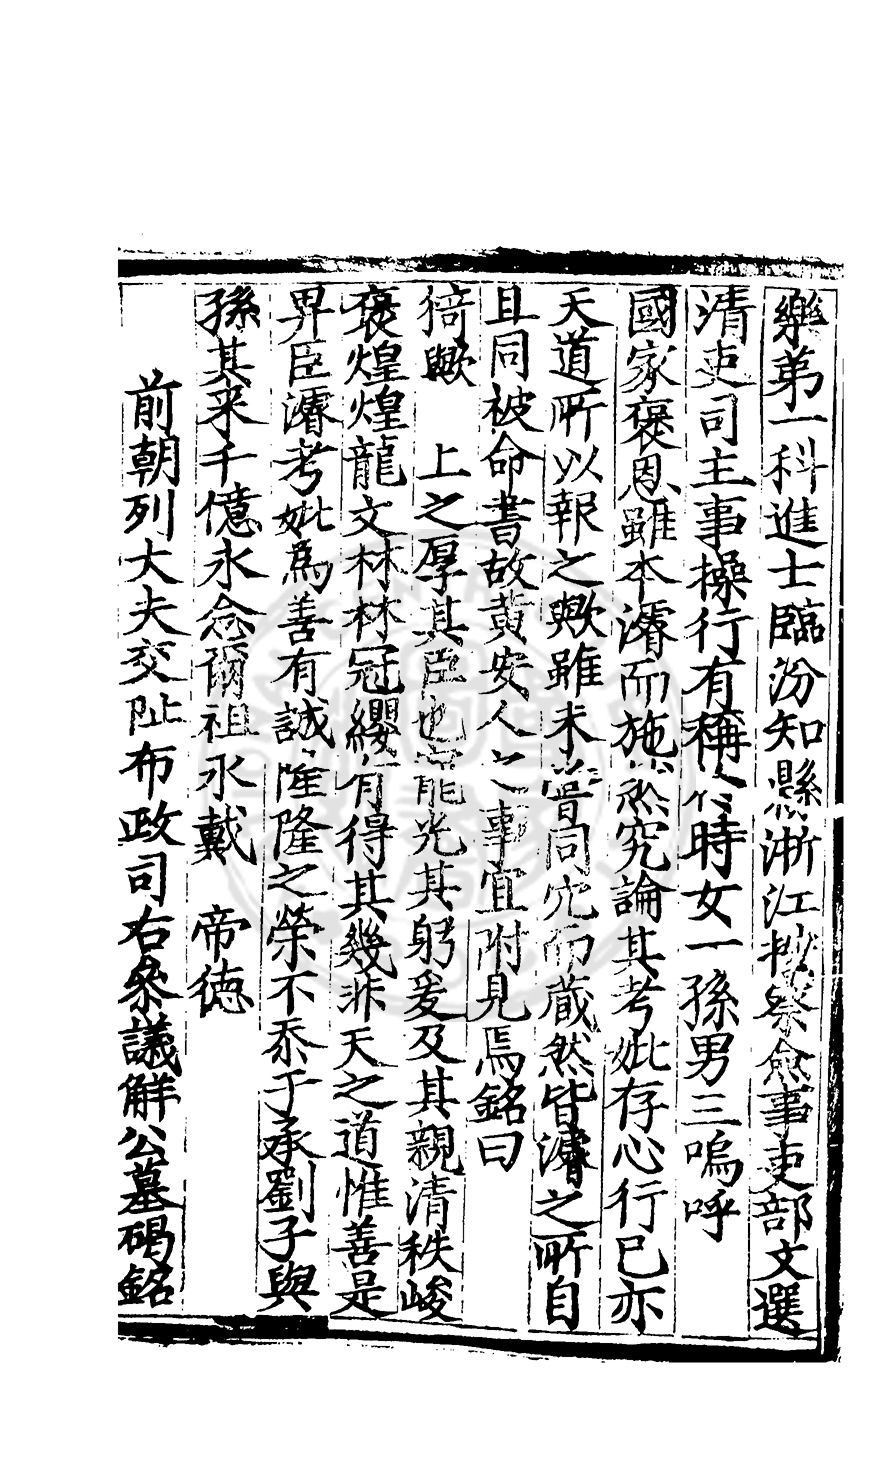 樂第一科進士臨汾知縣浙江按察僉事吏部文選
清吏司主事操行有稱於時女一孫男三嗚呼
國家褒恩雖本濬而施然究論其考妣存心行已亦
天道所以報之歟雖未嘗同穴而蔵然皆濬之所自
且同被命書故黃安人之事宜附見焉銘曰
猗歟 上之厚其臣也寵光其躬爰及其親清秩峻
褒煌煌龍文林林冠纓有得其幾非天之道惟善是
畀臣濬考妣為善有誠隆隆之榮不忝于承劉子與
孫其来千億永念爾祖永戴 帝德
前朝列大夫交阯布政司右叅議解公墓碣銘